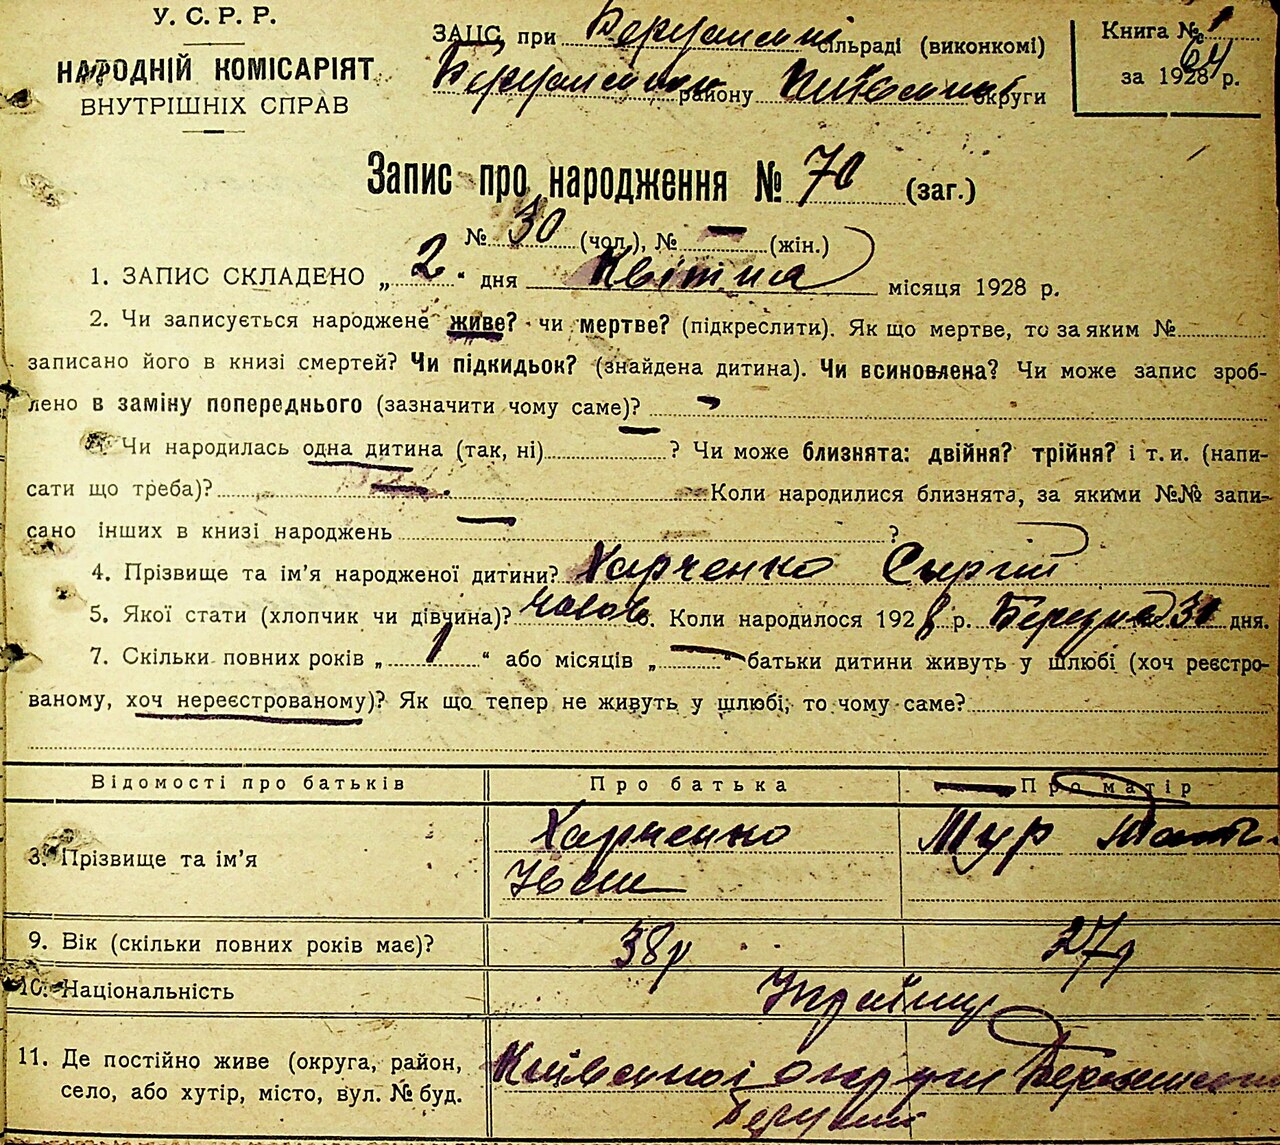 У. С. Р. Р.
НАРОДНІЙ КОМІСАРІЯТ
ВНУТРІШНІХ СПРАВ
ЗАПС при сільраді (виконкомі)
району округи
Книга № 1
64
за 1928 р.
Запис про народження № 70 (заг.)
№ 30 (чол.), № — (жін.)
1. ЗАПИС СКЛАДЕНО „ 2 “ дня Квітня місяця 1928 р.
2. Чи записується народжене живе? чи мертве? (підкреслити). Як що мертве, то за яким №
записано його в книзі смертей? Чи підкидьок? (знайдена дитина). Чи всиновлена? Чи може запис зроб-
лено в заміну попереднього (зазначити чому саме)?
Чи народилась одна дитина (так, ні) ? Чи може близнята: двійня? трійня? і т. и. (напи-
сати що треба)? Коли народилися близнята, за якими №№ запи-
сано інших в книзі народжень ?
4. Прізвище та ім’я народженої дитини? Харченко Сергій
5. Якої стати (хлопчик чи дівчина)? Коли народилося 1928 р. Березня 30 дня.
7. Скільки повних років „ 1 “ або місяців „ — “ батьки дитини живуть у шлюбі (хоч реєстро-
ваному, хоч нереєстрованому)? Як що тепер не живуть у шлюбі, то чому саме?
Відомості про батьків Про батька Про матір
8. Прізвище та ім’я Харченко Мур
9. Вік (скільки повних років має)? 38р 27р
10. Національність Українці
11. Де постійно живе (округа, район,
село, або хутір, місто, вул. № буд.
Київської округи